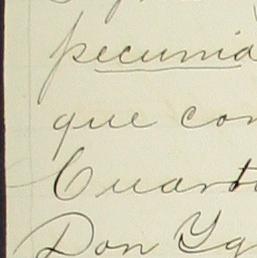 pecunia
que con
Cuarto
Don Yg